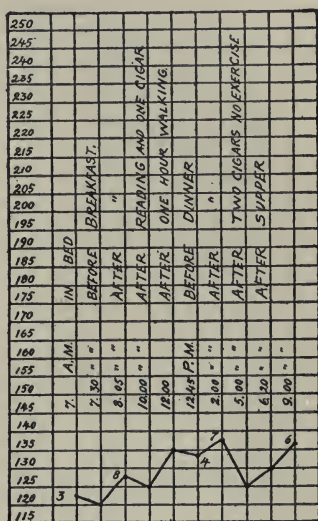 250
245
240
235
230
225
220
215
210
205
200
195
190
185
180
175
170
165
160
155
150
145
140
135
130
125
120
115
7. A.M. IN BED
7.30 " " BEFORE BREAKFAST.
8.05 " " AFTER "
10.00 " " AFTER READING AND ONE CIGAR
12.00 AFTER ONE HOUR WALKING.
12.45 P.M. BEFORE DINNER
2.00 " " AFTER "
5.00 " " AFTER TWO CIGARS NO EXERCISE
6.20 " " AFTER SUPPER
9.00 " "
3
8
4
7
6